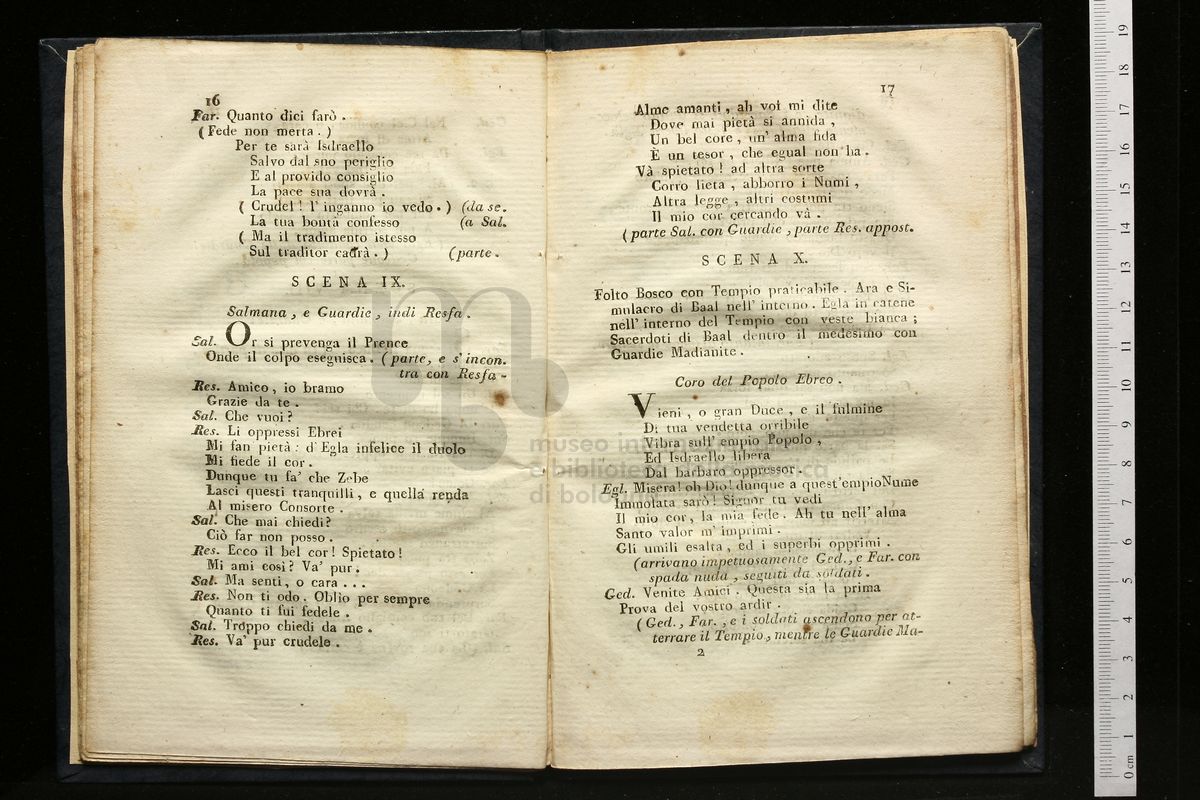 16
Far. Quanto dici farò .
( Fede non merta . )
Per te sarà Isdraello
Salvo dal suo periglio
E al provido consiglio
La pace sua dovrà .
( Crudel ! l' inganno io vedo . ) (da se.
La tua bontà confesso (a Sal.
( Ma il tradimento istesso
Sul traditor cadrà . ) (parte .
SCENA IX.
Salmana , e Guardie , indi Resfa .
Sal. Or si prevenga il Prence
Onde il colpo eseguisca . ( parte, e s' incon.
tra con Resfa -
Res. Amico , io bramo
Grazie da te .
Sal. Che vuoi ?
Res. Li oppressi Ebrei
Mi fan pietà : d' Egla infelice il duolo
Mi fiede il cor .
Dunque tu fa' che Zebe
Lasci questi tranquilli , e quella renda
Al misero Consorte .
Sal. Che mai chiedi ?
Ciò far non posso .
Res. Ecco il bel cor ! Spietato !
Mi ami così ? Va' pur .
Sal. Ma senti , o cara . . .
Res. Non ti odo . Oblio per sempre
Quanto ti fui fedele .
Sal. Troppo chiedi da me .
Res. Va' pur crudele .
17
Alme amanti , ah voi mi dite
Dove mai pietà si annida ,
Un bel core , un' alma fida
È un tesor , che egual non ha .
Và spietato ! ad altra sorte
Corro lieta , abborro i Numi ,
Altra legge , altri costumi
Il mio cor cercando và .
( parte Sal. con Guardie , parte Res. appost.
SCENA X.
Folto Bosco con Tempio praticabile . Ara e Si-
mulacro di Baal nell' interno . Egla in catene
nell' interno del Tempio con veste bianca ;
Sacerdoti di Baal dentro il medesimo con
Guardie Madianite .
Coro del Popolo Ebreo .
Vieni , o gran Duce , e il fulmine
Di tua vendetta orribile
Vibra sull' empio Popolo ,
Ed Isdraello libera
Dal barbaro oppressor .
Egl. Misera ! oh Dio ! dunque a quest' empio Nume
Immolata sarò ! Signor tu vedi
Il mio cor , la mia fede . Ah tu nell' alma
Santo valor m' imprimi .
Gli umili esalta , ed i superbi opprimi .
(arrivano impetuosamente Ged., e Far. con
spada nuda , seguiti da soldati .
Ged. Venite Amici . Questa sia la prima
Prova del vostro ardir .
( Ged., Far. , e i soldati ascendono per at-
terrare il Tempio , mentre le Guardie Ma-
2
museo in
e bibliote ca
di bolo
0 cm 1 2 3 4 5 6 7 8 9 10 11 12 13 14 15 16 17 18 19